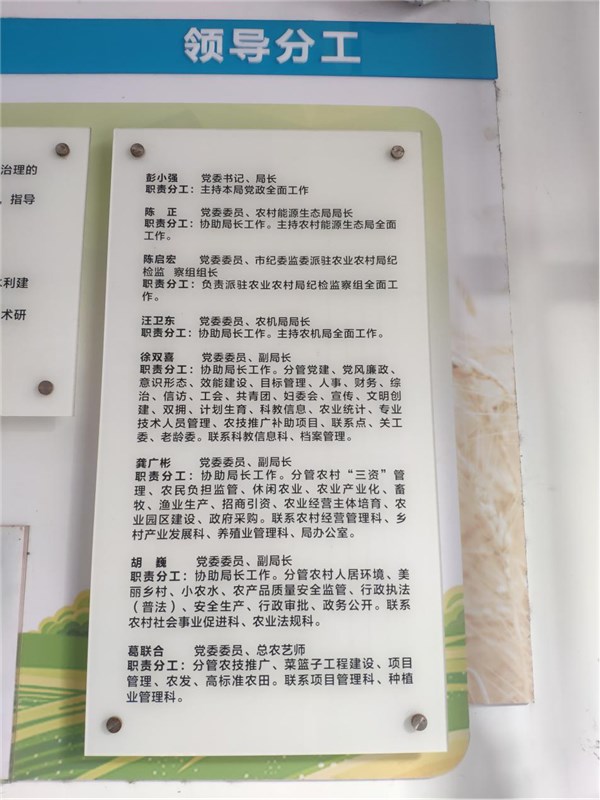 领导分工
治理的
，指导
利建
术研
彭小强 党委书记、局长
职责分工：主持本局党政全面工作
陈 正 党委委员、农村能源生态局局长
职责分工：协助局长工作。主持农村能源生态局全面
工作。
陈启宏 党委委员、市纪委监委派驻农业农村局纪
检监 察组组长
职责分工：负责派驻农业农村局纪检监察组全面工
作。
汪卫东 党委委员、农机局局长
职责分工：协助局长工作。主持农机局全面工作。
徐双喜 党委委员、副局长
职责分工：协助局长工作。分管党建、党风廉政、
意识形态、效能建设、目标管理、人事、财务、综
治、信访、工会、共青团、妇委会、宣传、文明创
建、双拥、计划生育、科教信息、农业统计、专业
技术人员管理、农技推广补助项目、联系点、关工
委、老龄委。联系科教信息科、档案管理。
龚广彬 党委委员、副局长
职责分工：协助局长工作。分管农村“三资”管
理、农民负担监管、休闲农业、农业产业化、畜
牧、渔业生产、招商引资、农业经营主体培育、农
业园区建设、政府采购。联系农村经营管理科、乡
村产业发展科、养殖业管理科、局办公室。
胡 巍 党委委员、副局长
职责分工：协助局长工作。分管农村人居环境、美
丽乡村、小农水、农产品质量安全监管、行政执法
（普法）、安全生产、行政审批、政务公开。联系
农村社会事业促进科、农业法规科。
葛联合 党委委员、总农艺师
职责分工：分管农技推广、菜篮子工程建设、项目
管理、农发、高标准农田。联系项目管理科、种植
业管理科。